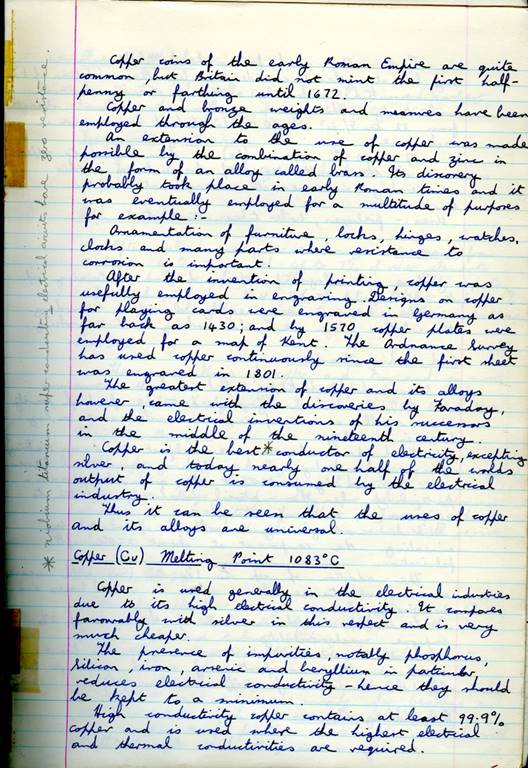 Copper coins of the early Roman Empire are quite
common, but Britain did not mint the first half-
penny or farthing until 1672.
Copper and bronze weights and measures have been
employed through the ages.
An extension to the use of copper was made
possible by the combination of copper and zinc in
the form of an alloy called brass. Its discovery
probably took place in early Roman times and it
was eventually employed for a multitude of purposes
for example :-
Ornamentation of furniture, locks, hinges, watches,
clocks and many parts where resistance to
corrosion is important.
After the invention of printing, copper was
usefully employed in engraving. Designs on copper
for playing cards were engraved in Germany as
far back as 1430; and by 1570 copper plates were
employed for a map of Kent. The Ordnance Survey
has used copper continuously since the first sheet
was engraved in 1801.
The greatest extension of copper and its alloys
however, came with the discoveries by Faraday,
and the electrical inventions of his successors
in the middle of the nineteenth century.
Copper is the best * conductor of electricity, excepting
silver, and today nearly one half of the worlds
output of copper is consumed by the electrical
industry.
Thus it can be seen that the uses of copper
and its alloys are universal.
Copper (Cu) Melting Point 1083°C
Copper is used generally in the electrical industries
due to its high electrical conductivity. It compares
favourably with silver in this respect and is very
much cheaper.
The presence of impurities, notably phosphorus,
silicon, iron, arsenic and beryllium in particular
reduces electrical conductivity - hence they should
be kept to a minimum.
High conductivity copper contains at least 99.9%
copper and is used where the highest electrical
and thermal conductivities are required.
* niobium titanium super-conducting electrical circuits have zero resistance.